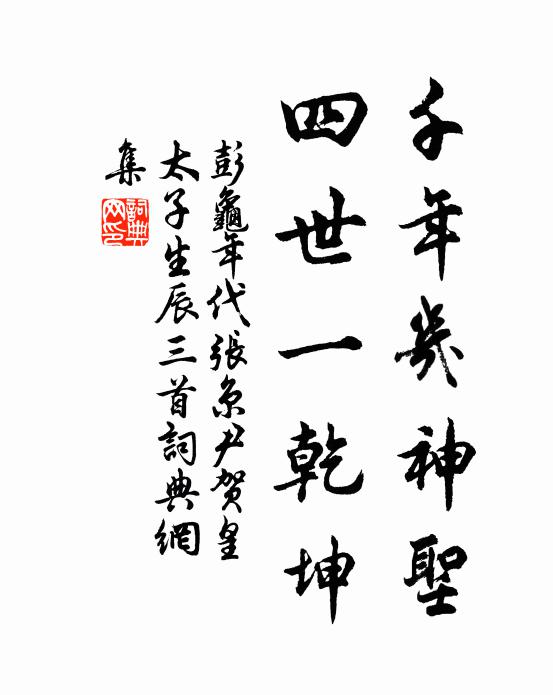 千年幾神聖
四世一乾坤
彭龜年代張京尹賀皇
太子生辰三首詞典網
集
詞典網印